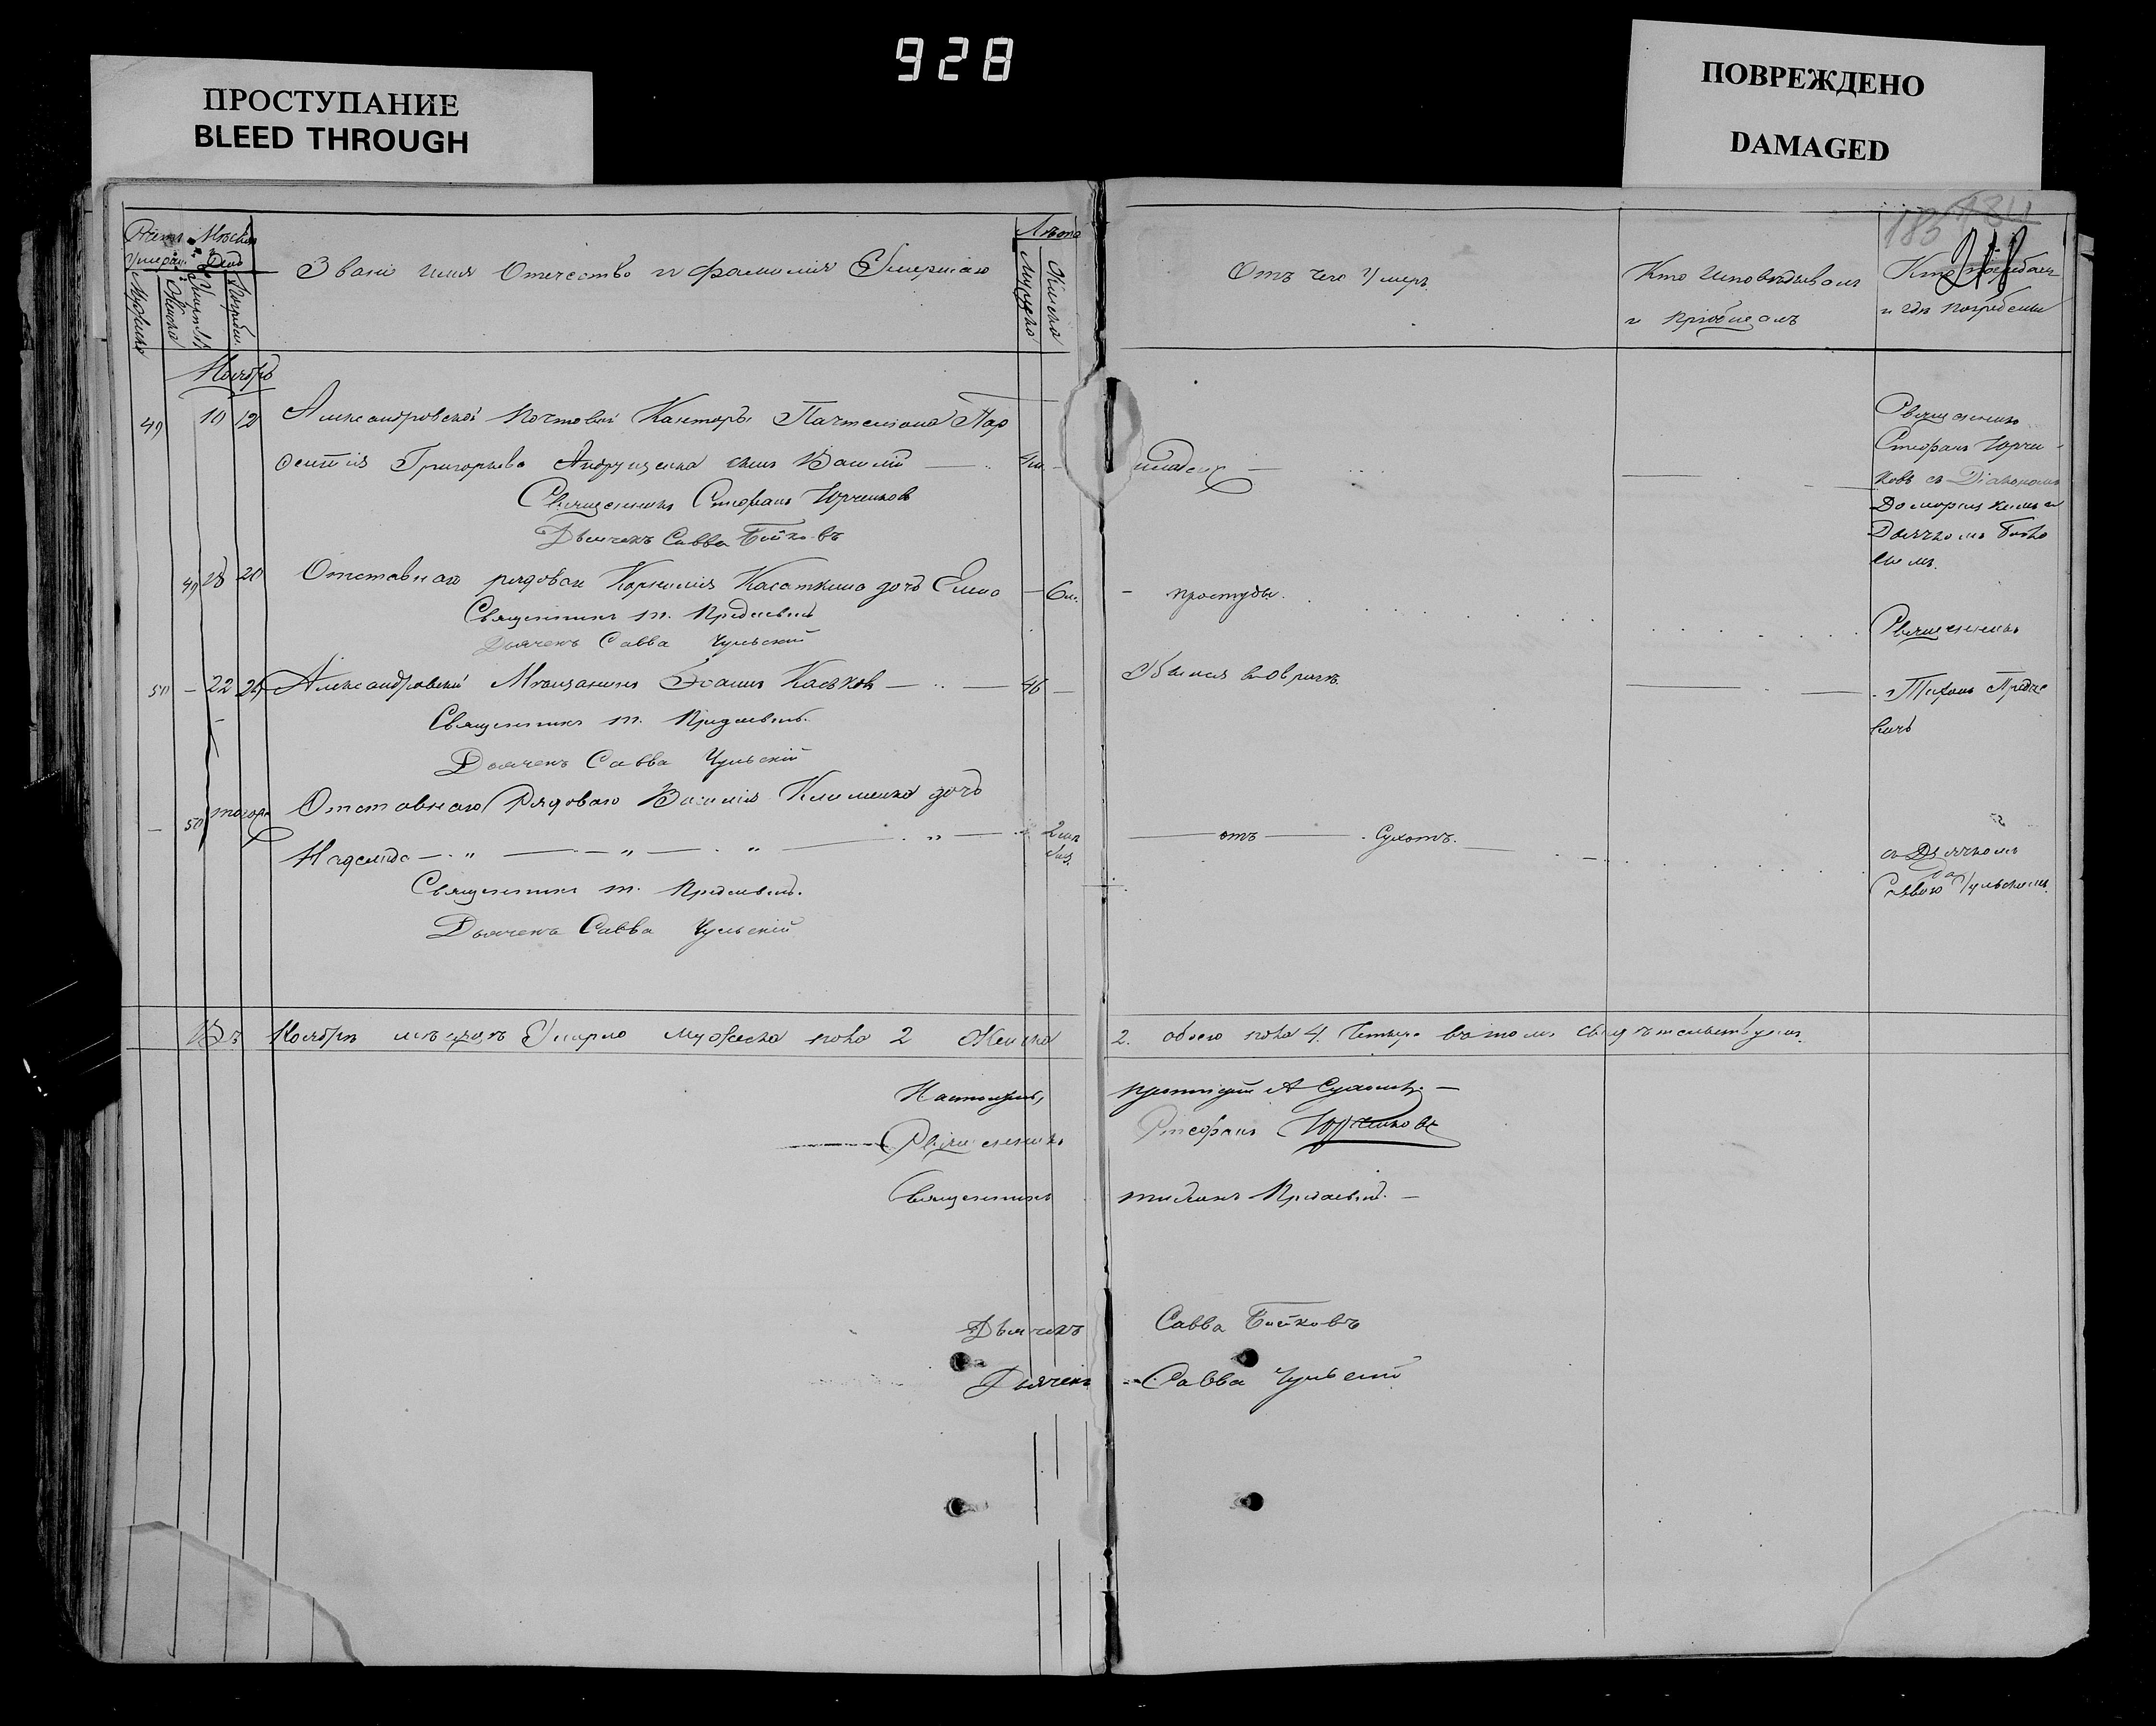 928
ПРОСТУПАНИЕ
BLEED THROUGH
ПОВРЕЖДЕНО
DAMAGED
218
Счетъ Умерш.
Мужеска
Женска
Мѣсяцъ и День
Погребен.
Звані имя Отечество и фамилія Умершаго
Лѣта
Мужеска
Женска
Отъ чего Умеръ
Кто Исповѣдывалъ
и пріобщалъ
Кто погребалъ
и гдѣ погребены
Ноябрь
49 10 12 Александровской почтовой Канторы Пачталiона
Григорьева Андрущенка сынъ Василій
младенч
Священникъ Стефанъ Юрченковъ
Дьячекъ Савва Бойковъ
Священникъ
Стефанъ Юрчен
ковъ съ Діакономъ
Дьячкомъ Бойко
вымъ.
49 18 20 Отставнаго рядоваго Корнилія Касаткина дочь Елена 6
простуды.
Священникъ т. Предаевичъ
Дьячекъ Савва Чульскій
Священникъ
50 22 Александровскій Мѣщанинъ Каськовъ 46
Священникъ т. Предаевичъ
Дьячекъ Савва Чульскій
Тихонъ Преда
евичъ
50 тогоже Отставнаго Рядоваго Василія Клименка дочь
Надежда 2
отъ Сухотъ.
Священникъ т. Предаевичъ.
Дьячекъ Савва Чульскій
съ Дьячкомъ
Саввою Чульскимъ.
Въ Ноябрѣ мѣсяцѣ Умерло мужеска пола 2 Женска 2. обоего пола 4. Четыре въ томъ свидѣтельствуемъ.
Настоятель, протоіерей А
Священникъ Стефанъ Юрченковъ
Священникъ Тихонъ Предаевичъ.
Дьячекъ Савва Бойковъ
Дьячекъ Савва Чульскій